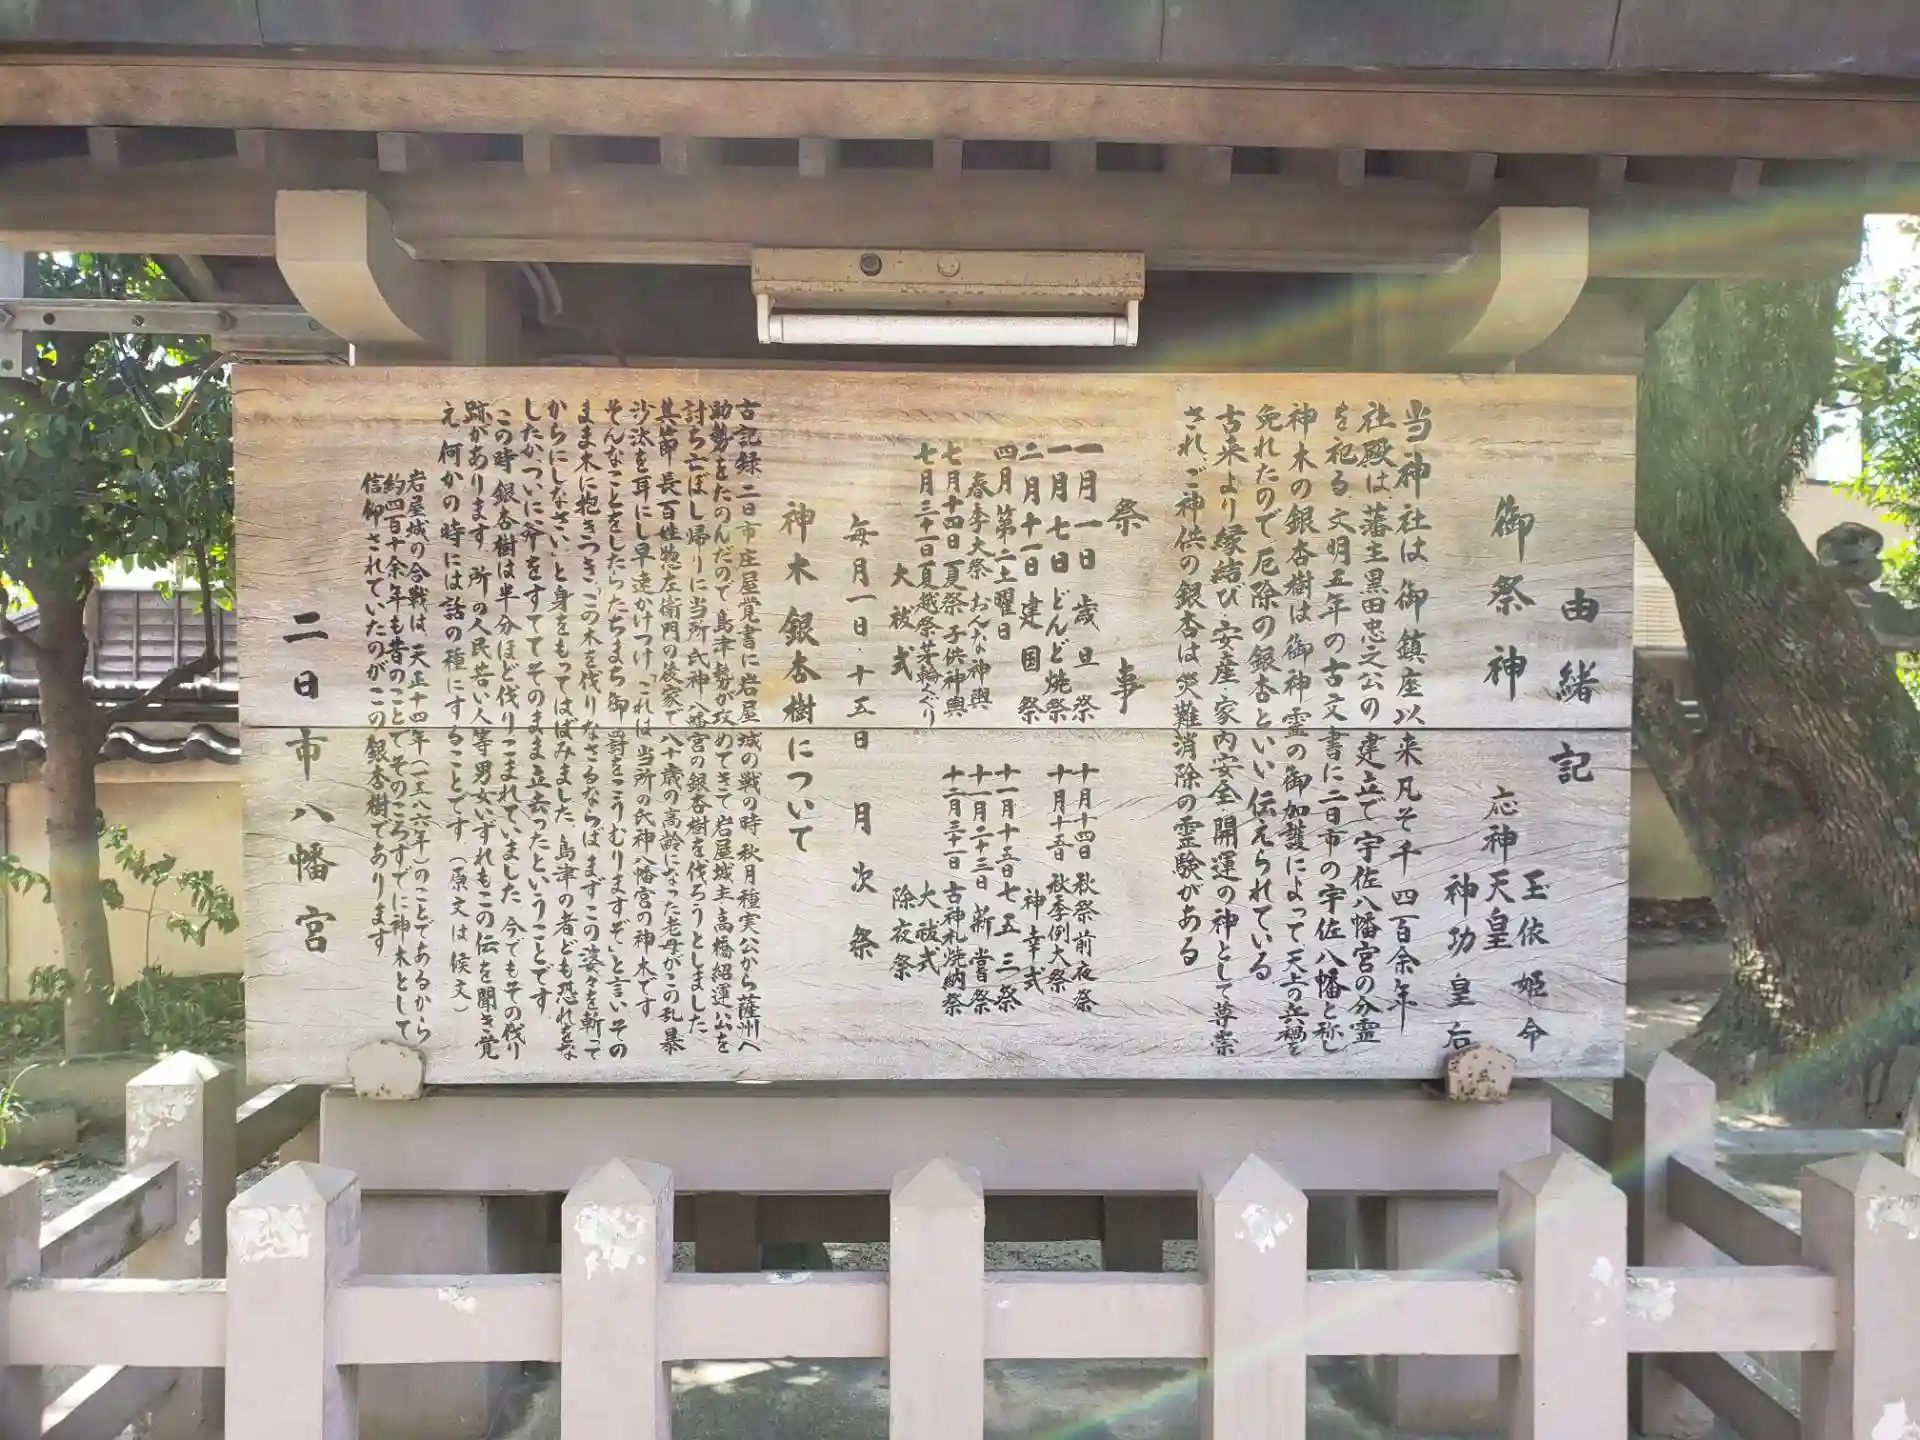 由緒記
御祭神
玉依姫命
応神天皇
神功皇后
当神社は御鎮座以来凡そ千四百余年
社殿は、藩主黒田忠之公の建立で、宇佐八幡宮の分霊
を祀る、文明五年の古文書に二日市の宇佐八幡と称し
神木の銀杏樹は御神霊の御加護によって天正の兵禍を
免れたので厄除の銀杏といい伝えられている
古来より縁結び、安産、家内安全、開運の神として尊崇
され、ご神供の銀杏は災難消除の霊験がある
祭事
一月一日 歳旦祭
一月七日 どんど焼祭
二月十一日 建国祭
四月第二土曜日
春季大祭 おんな神輿
七月十四日 夏祭・子供神輿
七月三十一日 夏越祭・茅輪くぐり
大祓式
十月十四日 秋祭前夜祭
十月十五日 秋季例大祭
神幸式
十一月十五日 七五三祭
十一月二十三日 新嘗祭
十二月三十一日 古神札焼納祭
大祓式
除夜祭
毎月一日・十五日 月次祭
神木 銀杏樹について
古記録、二日市庄屋覚書に岩屋城の戦の時、秋月種実公から薩州へ
助勢をたのんだので、島津勢が攻めてきて岩屋城主・高橋紹運公を
討ち亡ぼし帰りに当所氏神八幡宮の銀杏樹を伐ろうとしました
其節、長百姓惣左衛門の後家で八十歳の高齢になった老母がこの乱暴
沙汰を耳にし早速かけつけ、「これは当所の氏神八幡宮の神木です
そんなことをしたらたちまち御罰をこうむりますぞ」と言い、その
まま木に抱きつき、「この木を伐りなさるならば、まずこの婆々を斬って
からにしなさい」と身をもってはばみました、島津の者ども恐れをな
したか、ついに斧をすててそのまま立去ったということです
この時、銀杏樹は半分ほど伐りこまれていました、今でもその伐り
跡があります、所の人民若い人等男女いずれもこの伝を聞き覚
え、何かの時には話の種にすることです、(原文は候文)
岩屋城の合戦は、天正十四年(一五八六年)のことであるから
約四百十余年も昔のことで、そのころすでに神木として
信仰されていたのがこの銀杏樹であります
二日市八幡宮